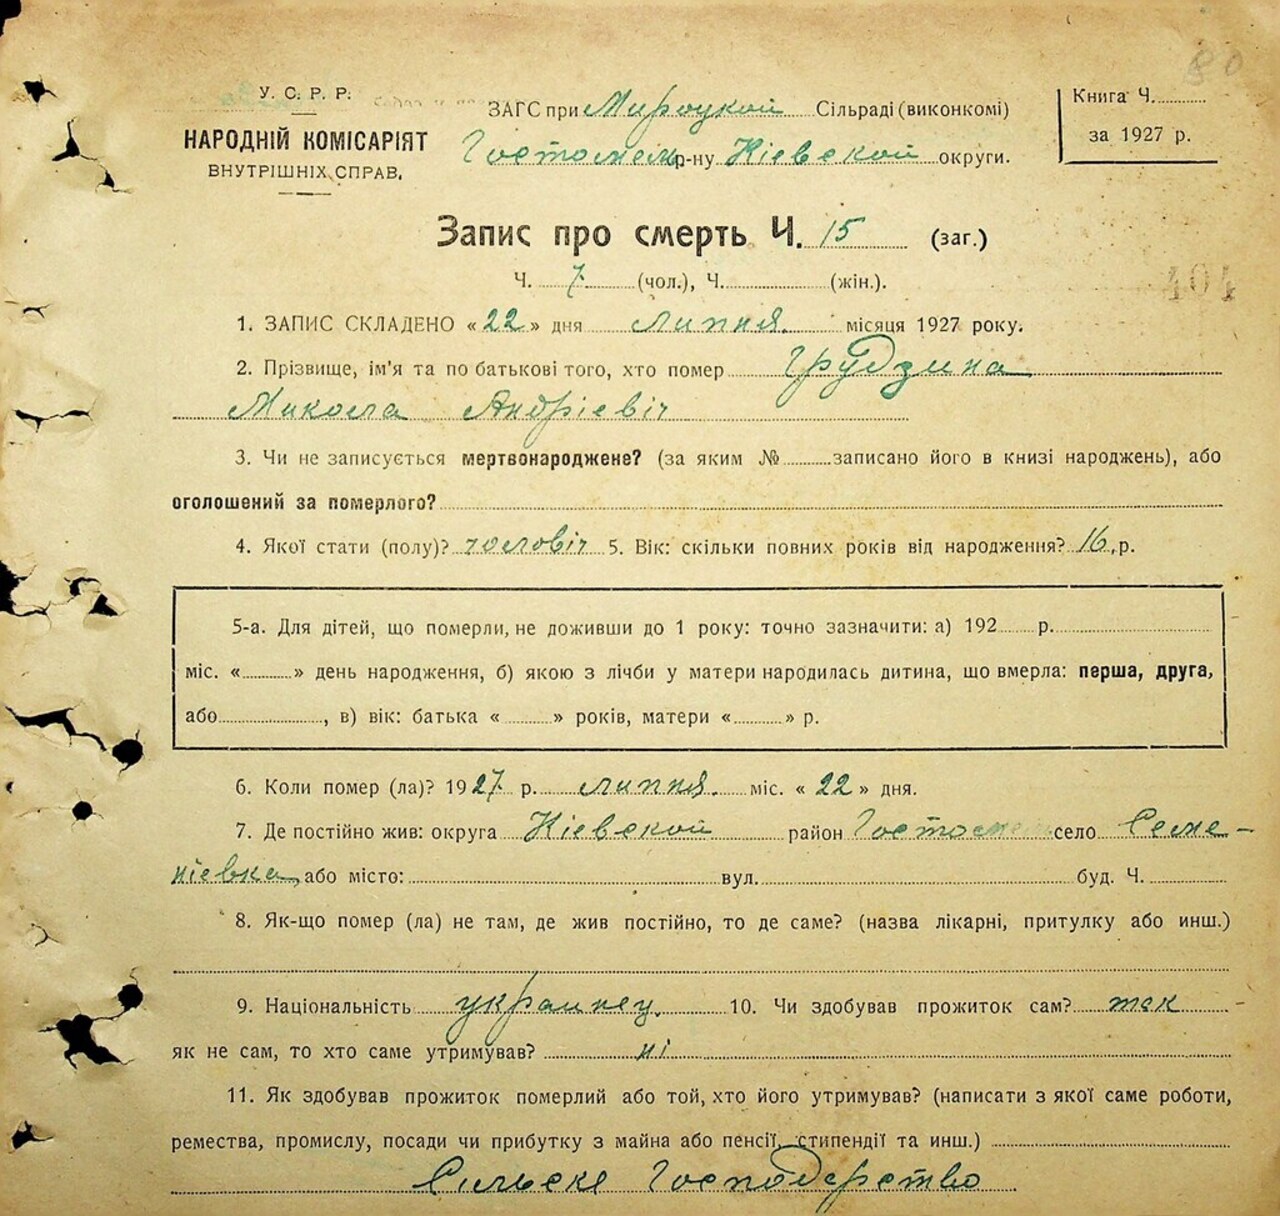 80
У. С. Р. Р.
НАРОДНІЙ КОМІСАРІЯТ
ВНУТРІШНІХ СПРАВ.
ЗАГС при Мироцкой Сільраді (виконкомі)
Гостомель р-ну Кіевской округи.
Книга Ч.
за 1927 р.
Запис про смерть Ч. 15 (заг.)
Ч. 7 (чол.), Ч. (жін.).
404
1. ЗАПИС СКЛАДЕНО «22» дня липня. місяця 1927 року.
2. Прізвище, ім'я та по батькові того, хто помер Грудзина
Микола Андріевіч
3. Чи не записується мертвонароджене? (за яким № записано його в книзі народжень), або
оголошений за померлого?
4. Якої стати (полу)? чоловіч 5. Вік: скільки повних років від народження? 16 р.
5-а. Для дітей, що померли, не доживши до 1 року: точно зазначити: а) 192 р.
міс. « » день народження, б) якою з лічби у матери народилась дитина, що вмерла: перша, друга,
або , в) вік: батька « » років, матери « » р.
6. Коли помер (ла)? 1927 р. липня. міс. «22» дня.
7. Де постійно жив: округа Кіевской район Гостоме село Семе-
ніевка, або місто: вул. буд. Ч.
8. Як-що помер (ла) не там, де жив постійно, то де саме? (назва лікарні, притулку або инш.)
9. Національність украинец. 10. Чи здобував прожиток сам? так
як не сам, то хто саме утримував? ні
11. Як здобував прожиток померлий або той, хто його утримував? (написати з якої саме роботи,
ремества, промислу, посади чи прибутку з майна або пенсії, стипендії та инш.)
Сильске Господарство